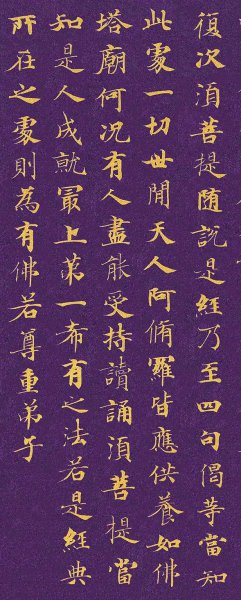 復次須菩提随說是經乃至四句偈等當知
此處一切世間天人阿脩羅皆應供養如佛
塔廟何況有人盡能受持讀誦須菩提當
知是人成就冣上苐一希有之法若是經典
所在之處則為有佛若尊重弟子